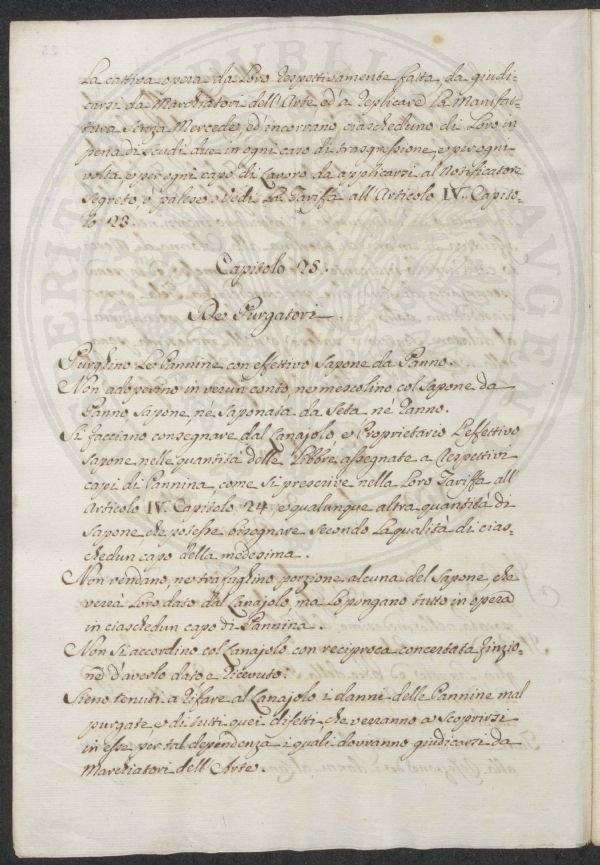 La cattiva opera da Loro respettivamente fatta, da giudi=
carsi da Marchiatori dell'Arte ed'a replicare la manifat=
tura senza Mercede, ed'incorrano ciascheduno di Loro in
pena di scudi due in ogni caso di trasgressione, e per ogni
volta, e per ogni capo di Lavoro da applicarsi al Notificatore
segreto, o palese, vedi La Tariffa all'Articolo IV. Capito=
lo 23.
Capitolo 25.
De Purgatori.
Purghino Le Pannine con effettivo Sapone da Panno.
Non adoperino in verun conto, ne mescolino col Sapone da
Panno Sapone, ne Saponata da Seta, ne Ranno.
Si facciano consegnare dal Lanajolo, e Proprietario L'effettivo
Sapone nelle quantità delle Libbre assegnate a respettivi
capi di Pannina, come si prescrive nella Loro Tariffa all'
Articolo IV. Capitolo 24, e qualunque altra quantità di
Sapone che potesse bisognare secondo La qualità di cias=
chedun capo della medesima.
Non vendano, ne trafughino porzione alcuna del Sapone, che
verrà Loro dato dal Lanajolo, ma Lo pongano tutto in opera
in ciaschedun capo di Pannina.
Non si accordino col Lanajolo con reciproca concertata finzio=
ne d'averlo dato, e ricevuto.
Sieno tenuti a rifare al Lanajolo i danni delle Pannine mal
purgate, e di tutti quei difetti, che verranno a scoprirsi
in esse per tal dependenza, i quali dovranno giudicarsi da
Marchiatori dell'Arte.